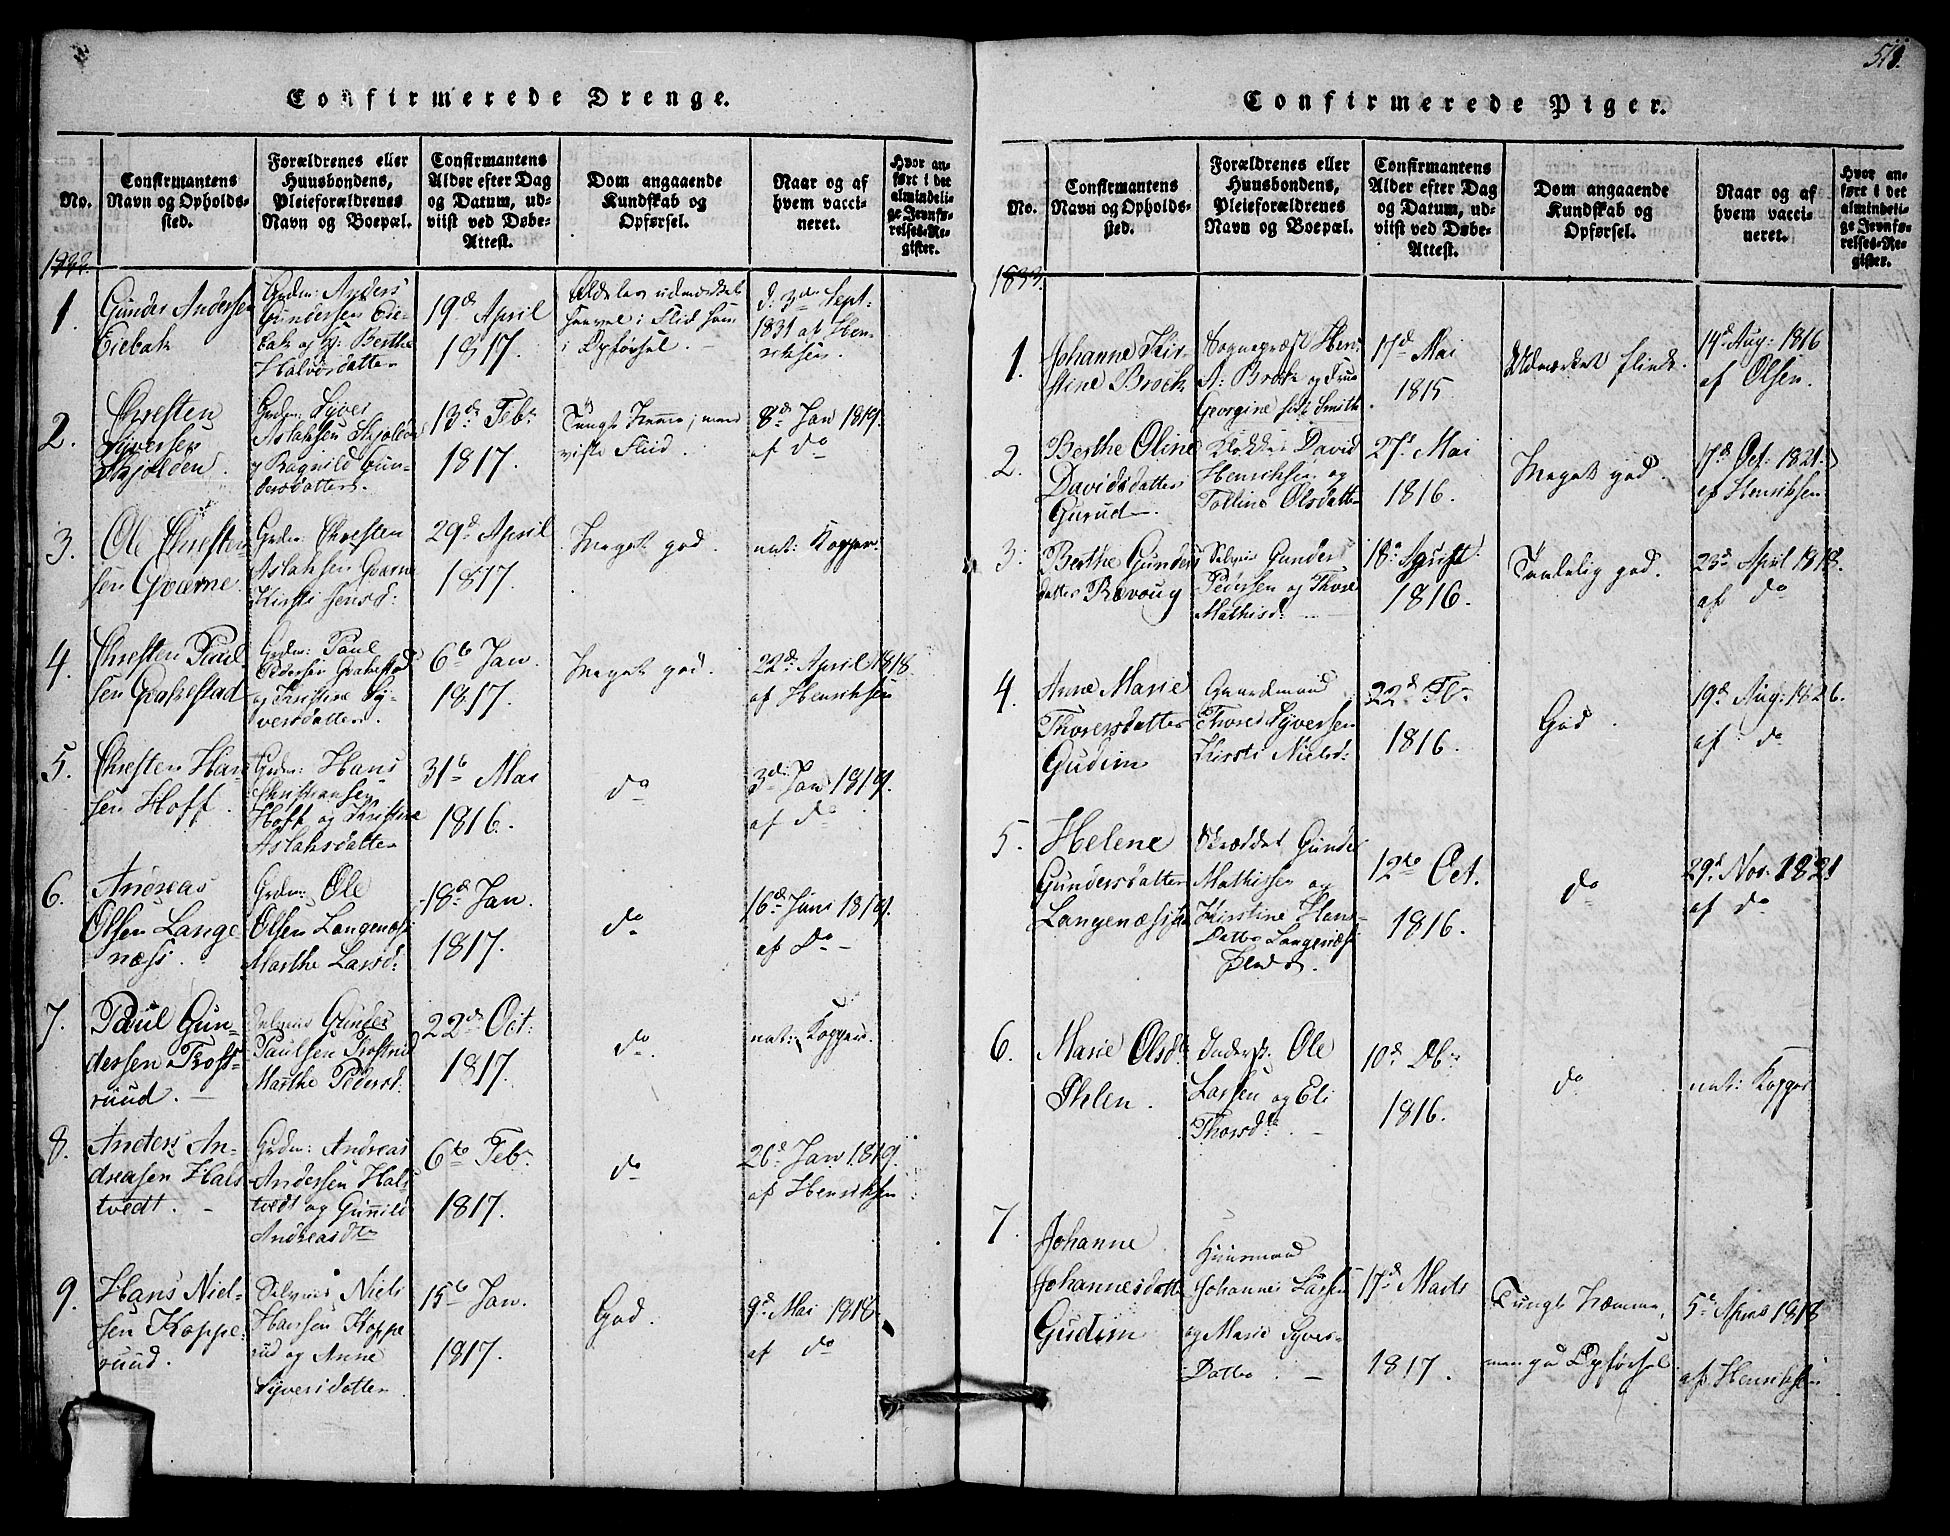 Confirmerede Drenge.
No.
Confirmantens Navn og Opholds-sted.
Forældrenes eller Huusbondens, Pleieforældrenes Navn og Boepæl.
Confirmantens Alder efter Dag og Datum, ud-viist ved Døbe-Attest.
Dom angaaende Kundskab og Opførsel.
Naar og af hvem vacci-neret.
Hvor an-ført i det almindeli-ge Jevnfø-relses-Re-gister.
1.
Gunder Andersen
Eiebak
Grdm: Anders
Gundersen Eie-
bak og Berthe
Halvorsdatter
19de April
1817.
i Opførsel.
d: 3de Sept.
1831 af Hen-
riksen.
2.
Chresten
Syversen
Skjolden.
Grdm: Syver
Aslaksen Skjolden
og Ragnild Gun-
dersdatter.
13de Febr
1817.
Tungt Nemme; men
viste Fliid.
8de Jan 1819.
af do
3.
Ole Chresten-
sen Gværne
Grdm: Chresten
Aslaksen Gværne
Kirsti Jensd:
29de April
1817.
Meget god.
nat: Kopper.
4.
Chresten Paul-
sen Grakestad
Grdm: Paul
Pedersen Grakestad
og Kirstine Sy-
versdatter.
6te Jan.
1817.
Meget god.
22de April 1818.
af Henriksen
5.
Chresten Han-
sen Hoff.
Grdm: Hans
Christiansen
Hoff og Kirstine
Aslaksdatter
31te Mai
1816.
do
3de Jan 1819.
af do
6.
Andreas
Olsen Lange
næss.
Grdm: Ole
Olsen Langenæs
Marthe Larsd:
18de Jan.
1817.
do
16de Juni 1819.
af Do
7.
Paul Gun-
dersen Trost-
ruud.
Selveier Gunder
Paulsen Trostrud
Marthe Pedersd:
22de Oct:
1817.
do.
nat: Kopper.
8.
Anders An-
dreasen Hals
tvedt.
Grdm: Andreas
Andersen Hals
tvedt og Gunild
Andreasdtr
6te Feb.
1817.
do
26de Jan 1819.
af Henriksen
9.
Hans Niel-
sen Koppe-
ruud.
Selveier Niels
Hansen Koppe
rud og Anne
Syversdatter.
15te Jan.
1817.
God.
9de Mai 1818
af do
Confirmerede Piger.
No.
Confirmantens Navn og Opholds-sted.
Forældrenes eller Huusbondens, Pleieforældrenes Navn og Boepæl.
Confirmantens Alder efter Dag og Datum, ud-viist ved Døbe-Attest.
Dom angaaende Kundskab og Opførsel.
Naar og af hvem vacci-neret.
Hvor an-ført i det almindeli-ge Jevnfø-relses-Re-gister.
1833.
1.
Johanne Kir-
stine Brock
Sognepræst Hen:
A: Brock og Frue
Georgine født Smith.
17de Mai
1815
Udmærket flink.
14de Aug: 1816
af Olsen.
2.
Berthe Oline
Davidsdatter
Gurud
Klokker David
Henriksen og
Tolline Olsdatter
27de Mai
1816.
Meget god.
17de Oct. 1821.
af Henriksen
3.
Berthe Gunders
datter Rævoug
Selveier Gunder
Pedersen og Thore
Mathisd:
18de August
1816.
Temelig god.
23de April 1818.
af do
4.
Anne Marie
Thorersdatter
Gudim
Gaardmand
Thorer Syversen
Kirsti Nielsd:
22de Fbr
1816.
God.
19de Aug: 1826.
af do
5.
Helene
Gundersdatter
Langenæseie
Skrædder Gunder
Mathisen og
Kirstine Hans-
Datter Langenæs
12te Oct.
1816.
do
29de Nov. 1821
af do
6.
Marie Olsdtr
Thelen.
Inderst: Ole
Larsen og Eli
Thorsdtr.
10de Dbr
1816.
do
nat: Kopper
7.
Johanne
Johannesdatter
Gudim
Huusmand
Johannes Larsen
og Marie Syvers-
Datter.
17de Marts
1817.
Tungt Nemme,
men god Opførsel.
5te April 1818
af Henriksen.